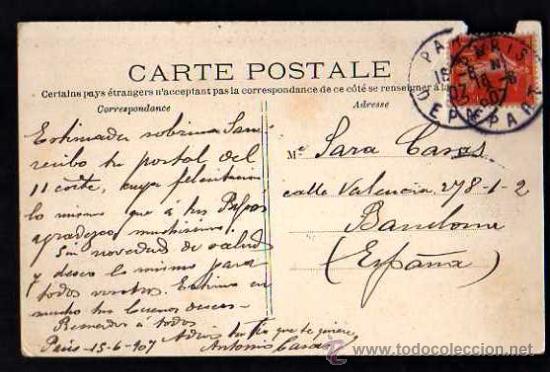 CARTE POSTALE
Certains pays étrangers n'acceptant pas la correspondance de ce côté se renseigner à la
Correspondance
Adresse
PARIS
DEPART
Estimada sobrina Sara
recibo tu postal del
11 corte, cuya felicitacion
lo mismo que á tus Papas
agradezco muchisimo.
Sin novedad de salud
y deseo lo mismo para
todos vostros. Estimo en
mucho tus buenos deseos-
Recuerdos á todos
Adios tu tio que te quiere
Paris - 15-6-907 Antonio Casas
Sara Casas
calle Valencia 278-1-2
Barcelona
(España)
todocoleccion.net
www.todocoleccion.net